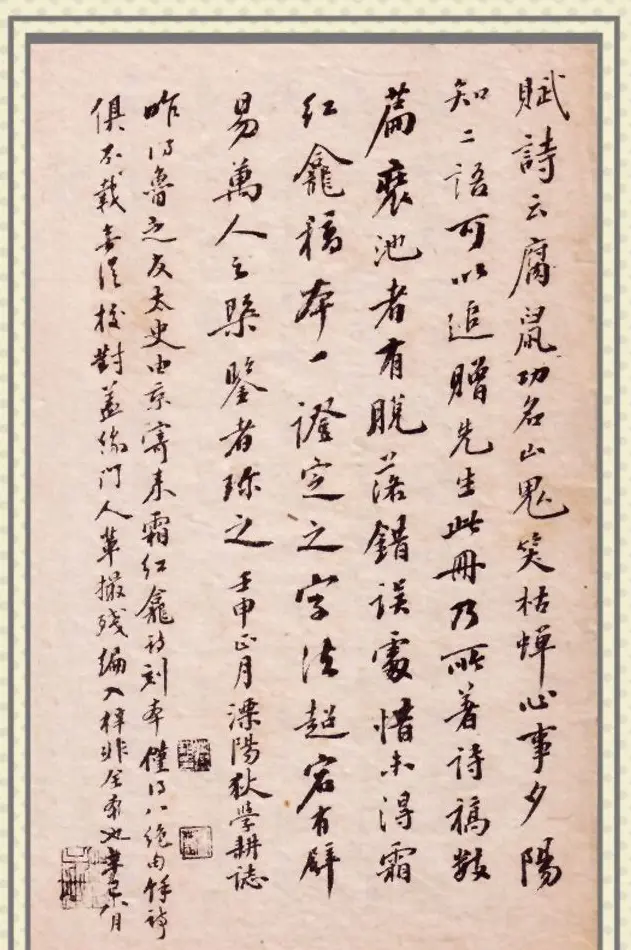 賦詩云腐鼠功名山鬼笑枯蟬心事夕陽
知二語可以追贈先生此冊乃所著詩稿數
篇裝池者有脫落錯誤處惜未得霜
紅龕稿本一證定之字法超宕有辟
易萬人之槩鑒者珍之 壬申正月溧陽狄學耕誌
昨得魯之友太史由京寄來霜紅龕詩刻本僅得八絕句餘詩
俱不載無從校對蓋係門人輩撮殘編入梓非全本也 八月